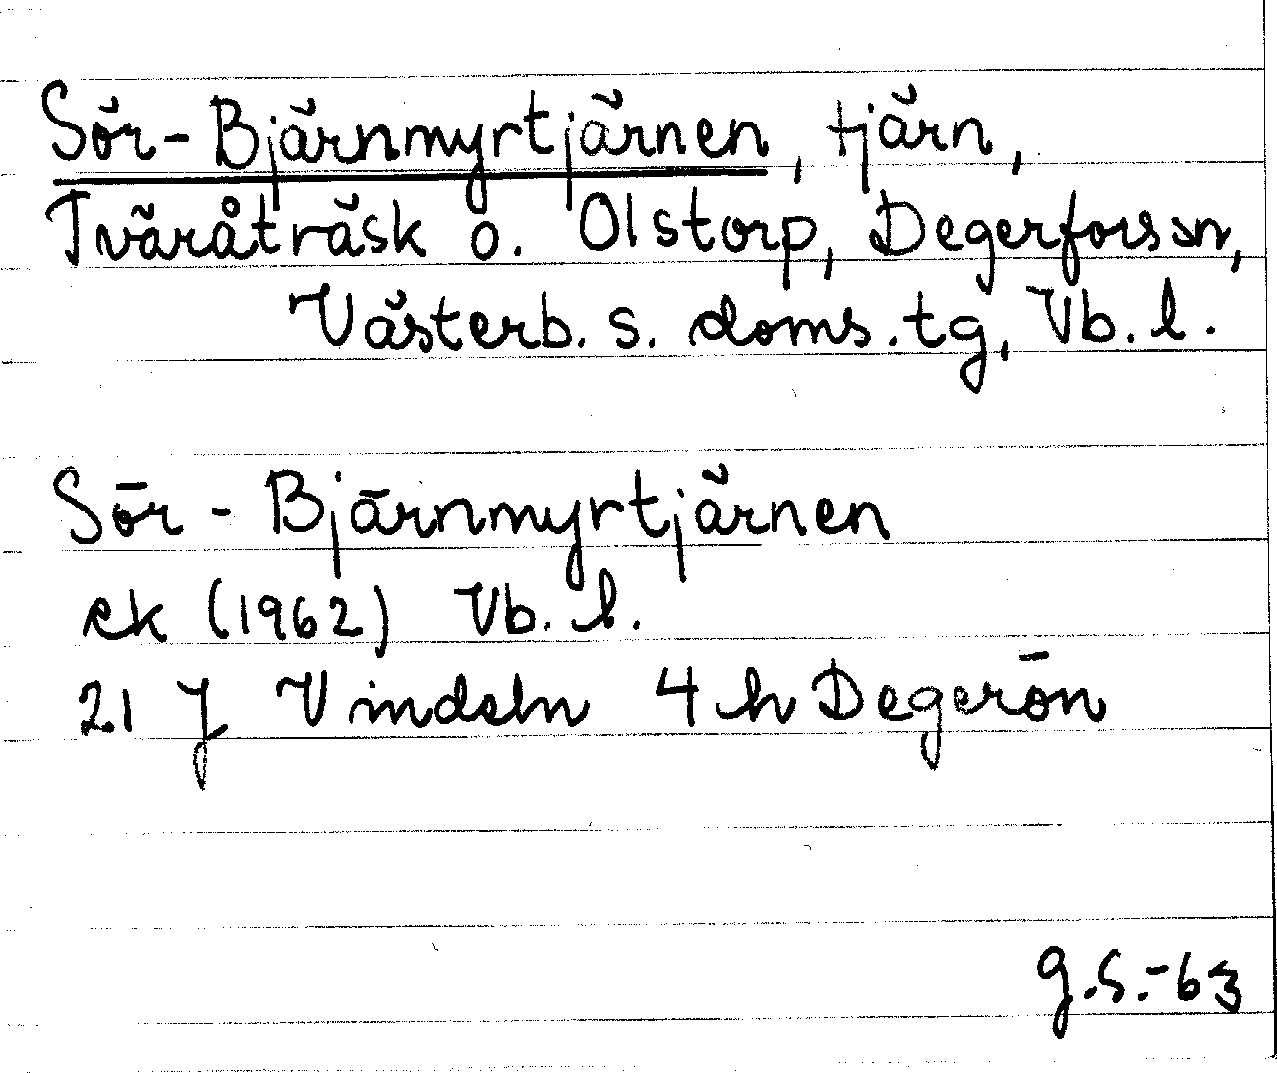 Sör-Bjärnmyrtjärnen, tjärn,
Tväråträsk o. Olstorp, Degerfors sn,
Västerb. s. doms. tg, Vb. l.
Sör-Bjärnmyrtjärnen
ek (1962) Vb. l.
21 J Vindeln 4 h Degerön
G.S.-63